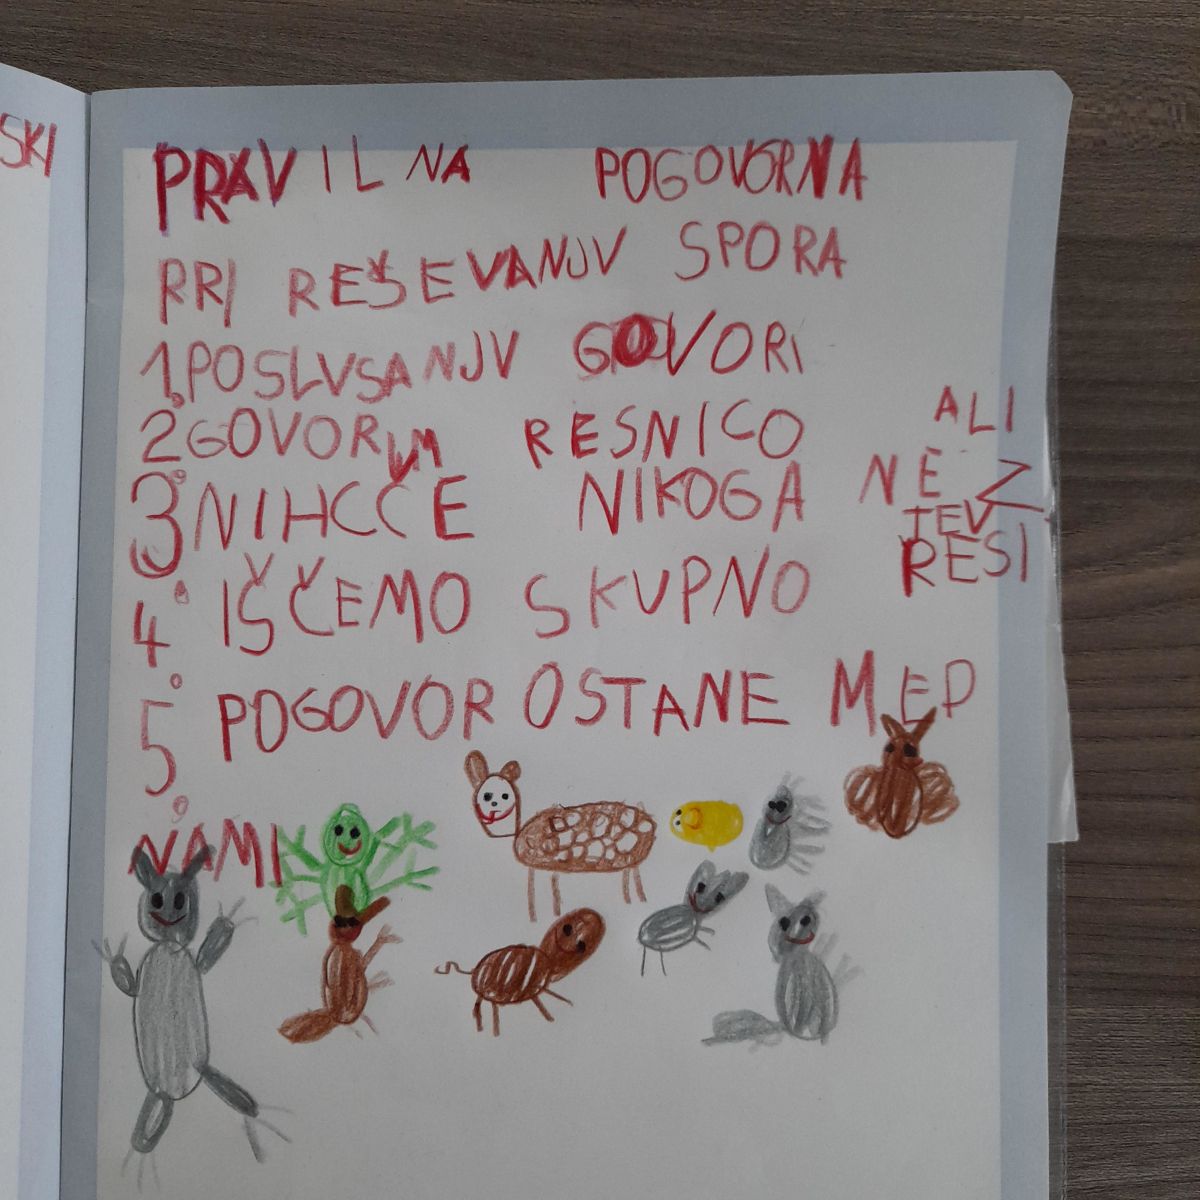 SKI
PRAVILNA POGOVORNA
PRI REŠEVANJU SPORA
1. POSLUSANJU GOVORI
2. GOVORIM RESNICO ALI
3. NIHCČE NIKOGA NE Z
TEV
RESI
4. IŠČEMO SKUPNO
5. POGOVOR OSTANE MED
NAMI